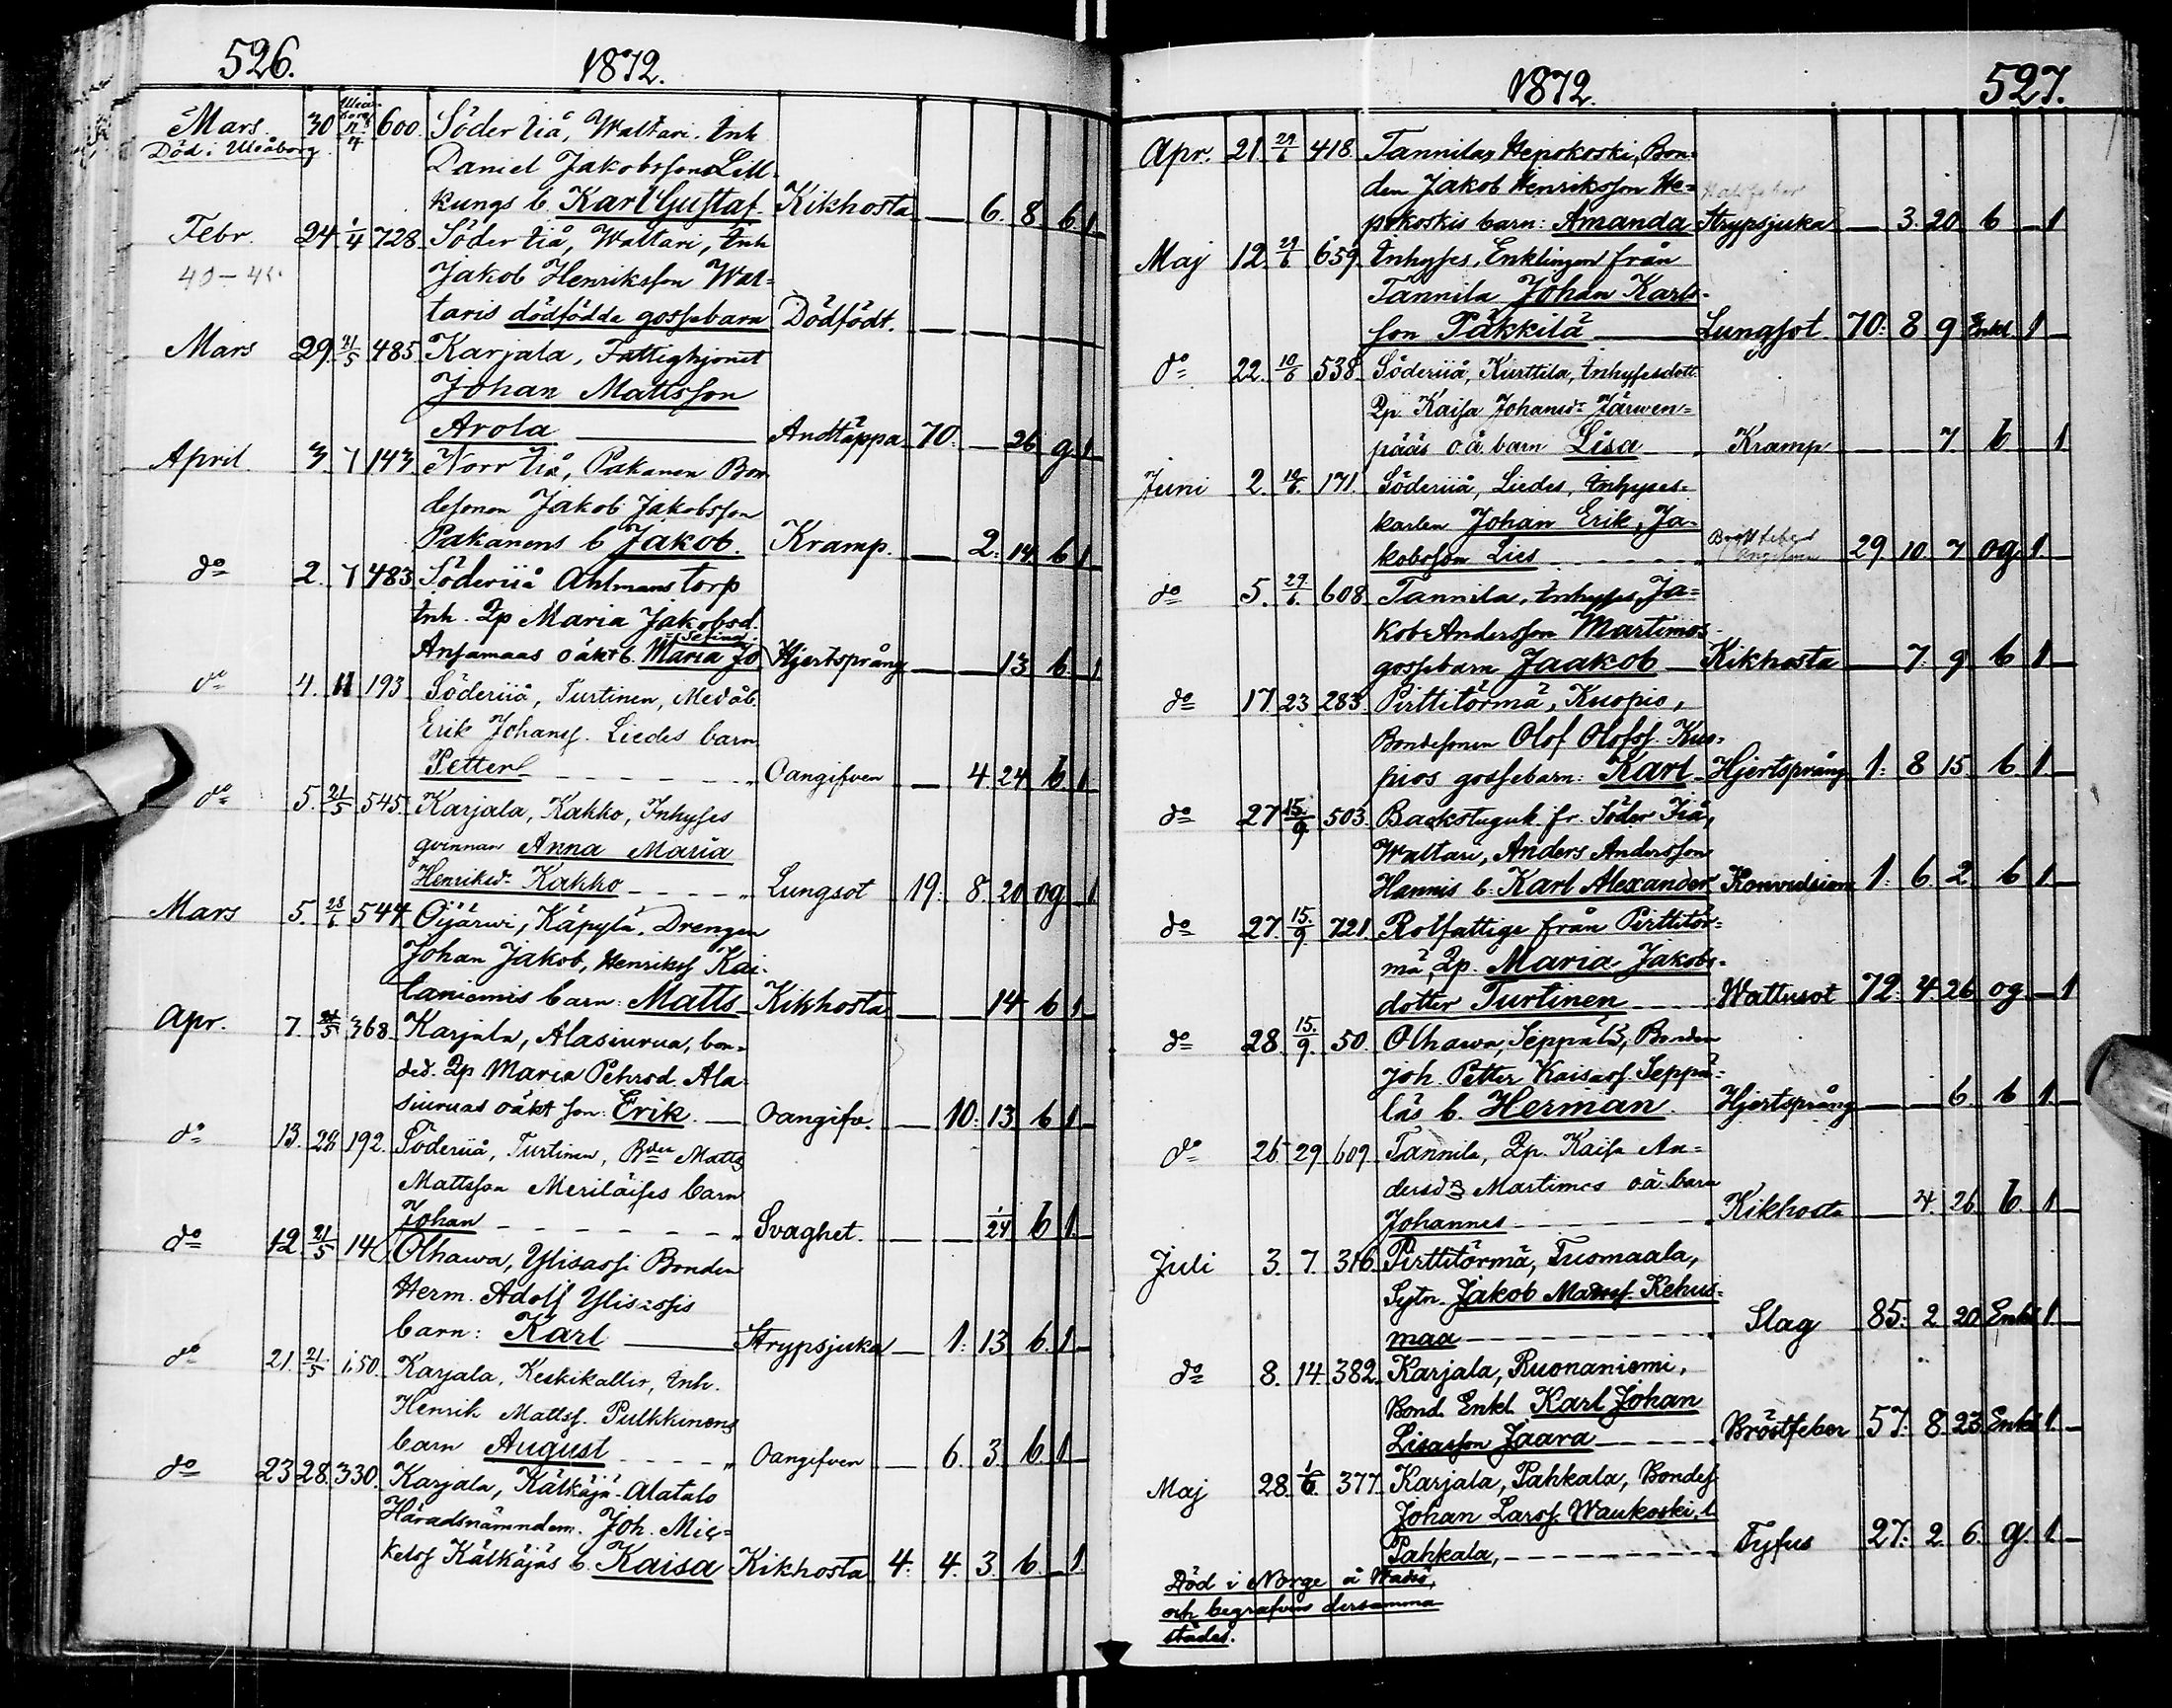 526. 1872.
Mars 30 Uleåborg 11/4 600. Söder Iiå, Waltari. Inh
Död i Uleåborg Daniel Jakobssons Lill-
kungs b. Karl Gustaf. Kikhosta — 6. 8 b 1
Febr. 24 1/4 728 Söder Iiå, Waltari, Inh
40-45 Jakob Henriksson Wal=
taris dödfödda gossebarn Dödfödt. — — —
Mars 29. 21/5 485 Karjala, Fattighjonet
Johan Mattsson
Arola — Andtäppa 70: — 26 g 1
April 3. 7 143 Norr Iiå, Pakanen Bon
desonen Jakob Jakobsson
Pakanens b Jakob. Kramp. — 2: 14. b 1
do 2. 7 483 Söderiiå Ahlmans torp
Inh. Qp Maria Jakobsd.
Ansamaas oäkt b. Maria Jo Hjertsprång — — 13 b. 1
do 4. 11 193 Söderiiå, Turtinen, Medåb.
Erik Johanss. Liedes barn
Petter Oangifven — 4. 24 b. 1
do 5. 21/5 545. Karjala, Kakko, Inhyses
qvinnan Anna Maria
Henriksd. Kakko Lungsot 19: 8. 20 og 1
Mars 5. 28/6 544. Oijärwi, Käpylä. Drengen
Johan Jakob, Henrikss Kai-
laniemis barn: Matts Kikhosta — — 14 b 1
Apr. 7. 21/5 368 Karjala, Alasiurua, bon-
ded. Qp Maria Pehrsd. Ala-
siuruas oäkt son: Erik. — Oangifv. — 10: 13 b 1
do 13. 28 192. Söderiiå, Turtinen, Bden Matts
Mattsson Meriläises barn
Johan Svaghet. — — 1/24 b 1
do 12 21/5 14 Olhawa, Ylisassi Bonden
Herm. Adolf Ylisassis
barn: Karl — Strypsjuka — 1: 13 b. 1
do 21. 21/5 150. Karjala, Keskikallio, Inh.
Henrik Mattss. Pulkkinens
barn August Oangifven — 6. 3. b. 1
do 23 28. 330. Karjala, Kälkäjä-Alatalo
Häradsnämndem. Joh. Mic=
kelss Kälkäjäs b. Kaisa Kikhosta 4: 4. 3. b. 1.
1872. 527.
Apr. 21 29/6 418 Tannila, Hepokoski, Bon-
den Jakob Henriksson He=
pokoskis barn: Amanda Strypsjuka — 3. 20 b — 1
Maj 12. 29/6 659 Inhyses, Enklingen från
Tannila Johan Karls-
son Päkkilä — Lungsot. 70: 8 9 Enkl. 1 —
do 22. 10/6 538 Söderiiå, Kurttila, Inhysesdott.
Qp. Kaisa Johansdr Järwen=
pääs oä. barn Lisa Kramp — — 7. b. 1.
Juni 2. 10/6. 171. Söderiiå, Liedes, Inhyses-
karlen Johan Erik, Ja-
kobsson Lies Bröstfeber 29. 10. 7 og 1 —
do 5. 29/6. 608. Tannila, Inhyses, Ja=
kob Andersson Martimos
gossebarn Jaakob — Kikhosta — 7: 9 b 1 —
do 17. 23 283. Pirttitörmä, Kuopio,
Bondesonen Olof Olofss. Kuo-
pios gossebarn: Karl Hjertsprång 1: 8 15. b. 1 —
do 27 15/9 503. Backstuguk. fr. Söder Iiå,
Waltari, Anders Andersson
Hannis b. Karl Alexander Konvulsion 1: 6. 2. b 1 —
do 27. 15./9. 721. Rotfattige från Pirttitör=
mä, Qp. Maria Jakobs-
dotter Turtinen Wattusot 72. 4. 26 og — 1
do 28. 15./9. 50. Olhawa, Seppälä, Bonden
Joh. Petter Kaisass. Seppä-
läs b. Herman. Hjertsprång — — 6. b 1. —
do 26 29. 609. Tannila, Qp. Kaisa An=
dersdr Martimos oä. barn
Johannes Kikhosta — 4. 26. b. 1 —
Juli 3. 7. 316. Pirttitörmä, Tuomaala,
Sytn. Jakob Matss. Kehus=
maa Slag 85: 2. 20 Enkl 1 —
do 8. 14. 382. Karjala, Ruonaniemi,
Bond. Enkl. Karl Johan
Lisasson Jaara Bröstfeber 57. 8. 23 Enkl 1. —
Maj 28. 1/6. 377. Karjala, Pahkala, Bondes
Johan Larss. Waukoski, l.
Pahkala, Tyfus 27. 2. 6. g. 1. —
Död i Norge å Wadsö,
och begrafven dersamma
städes.